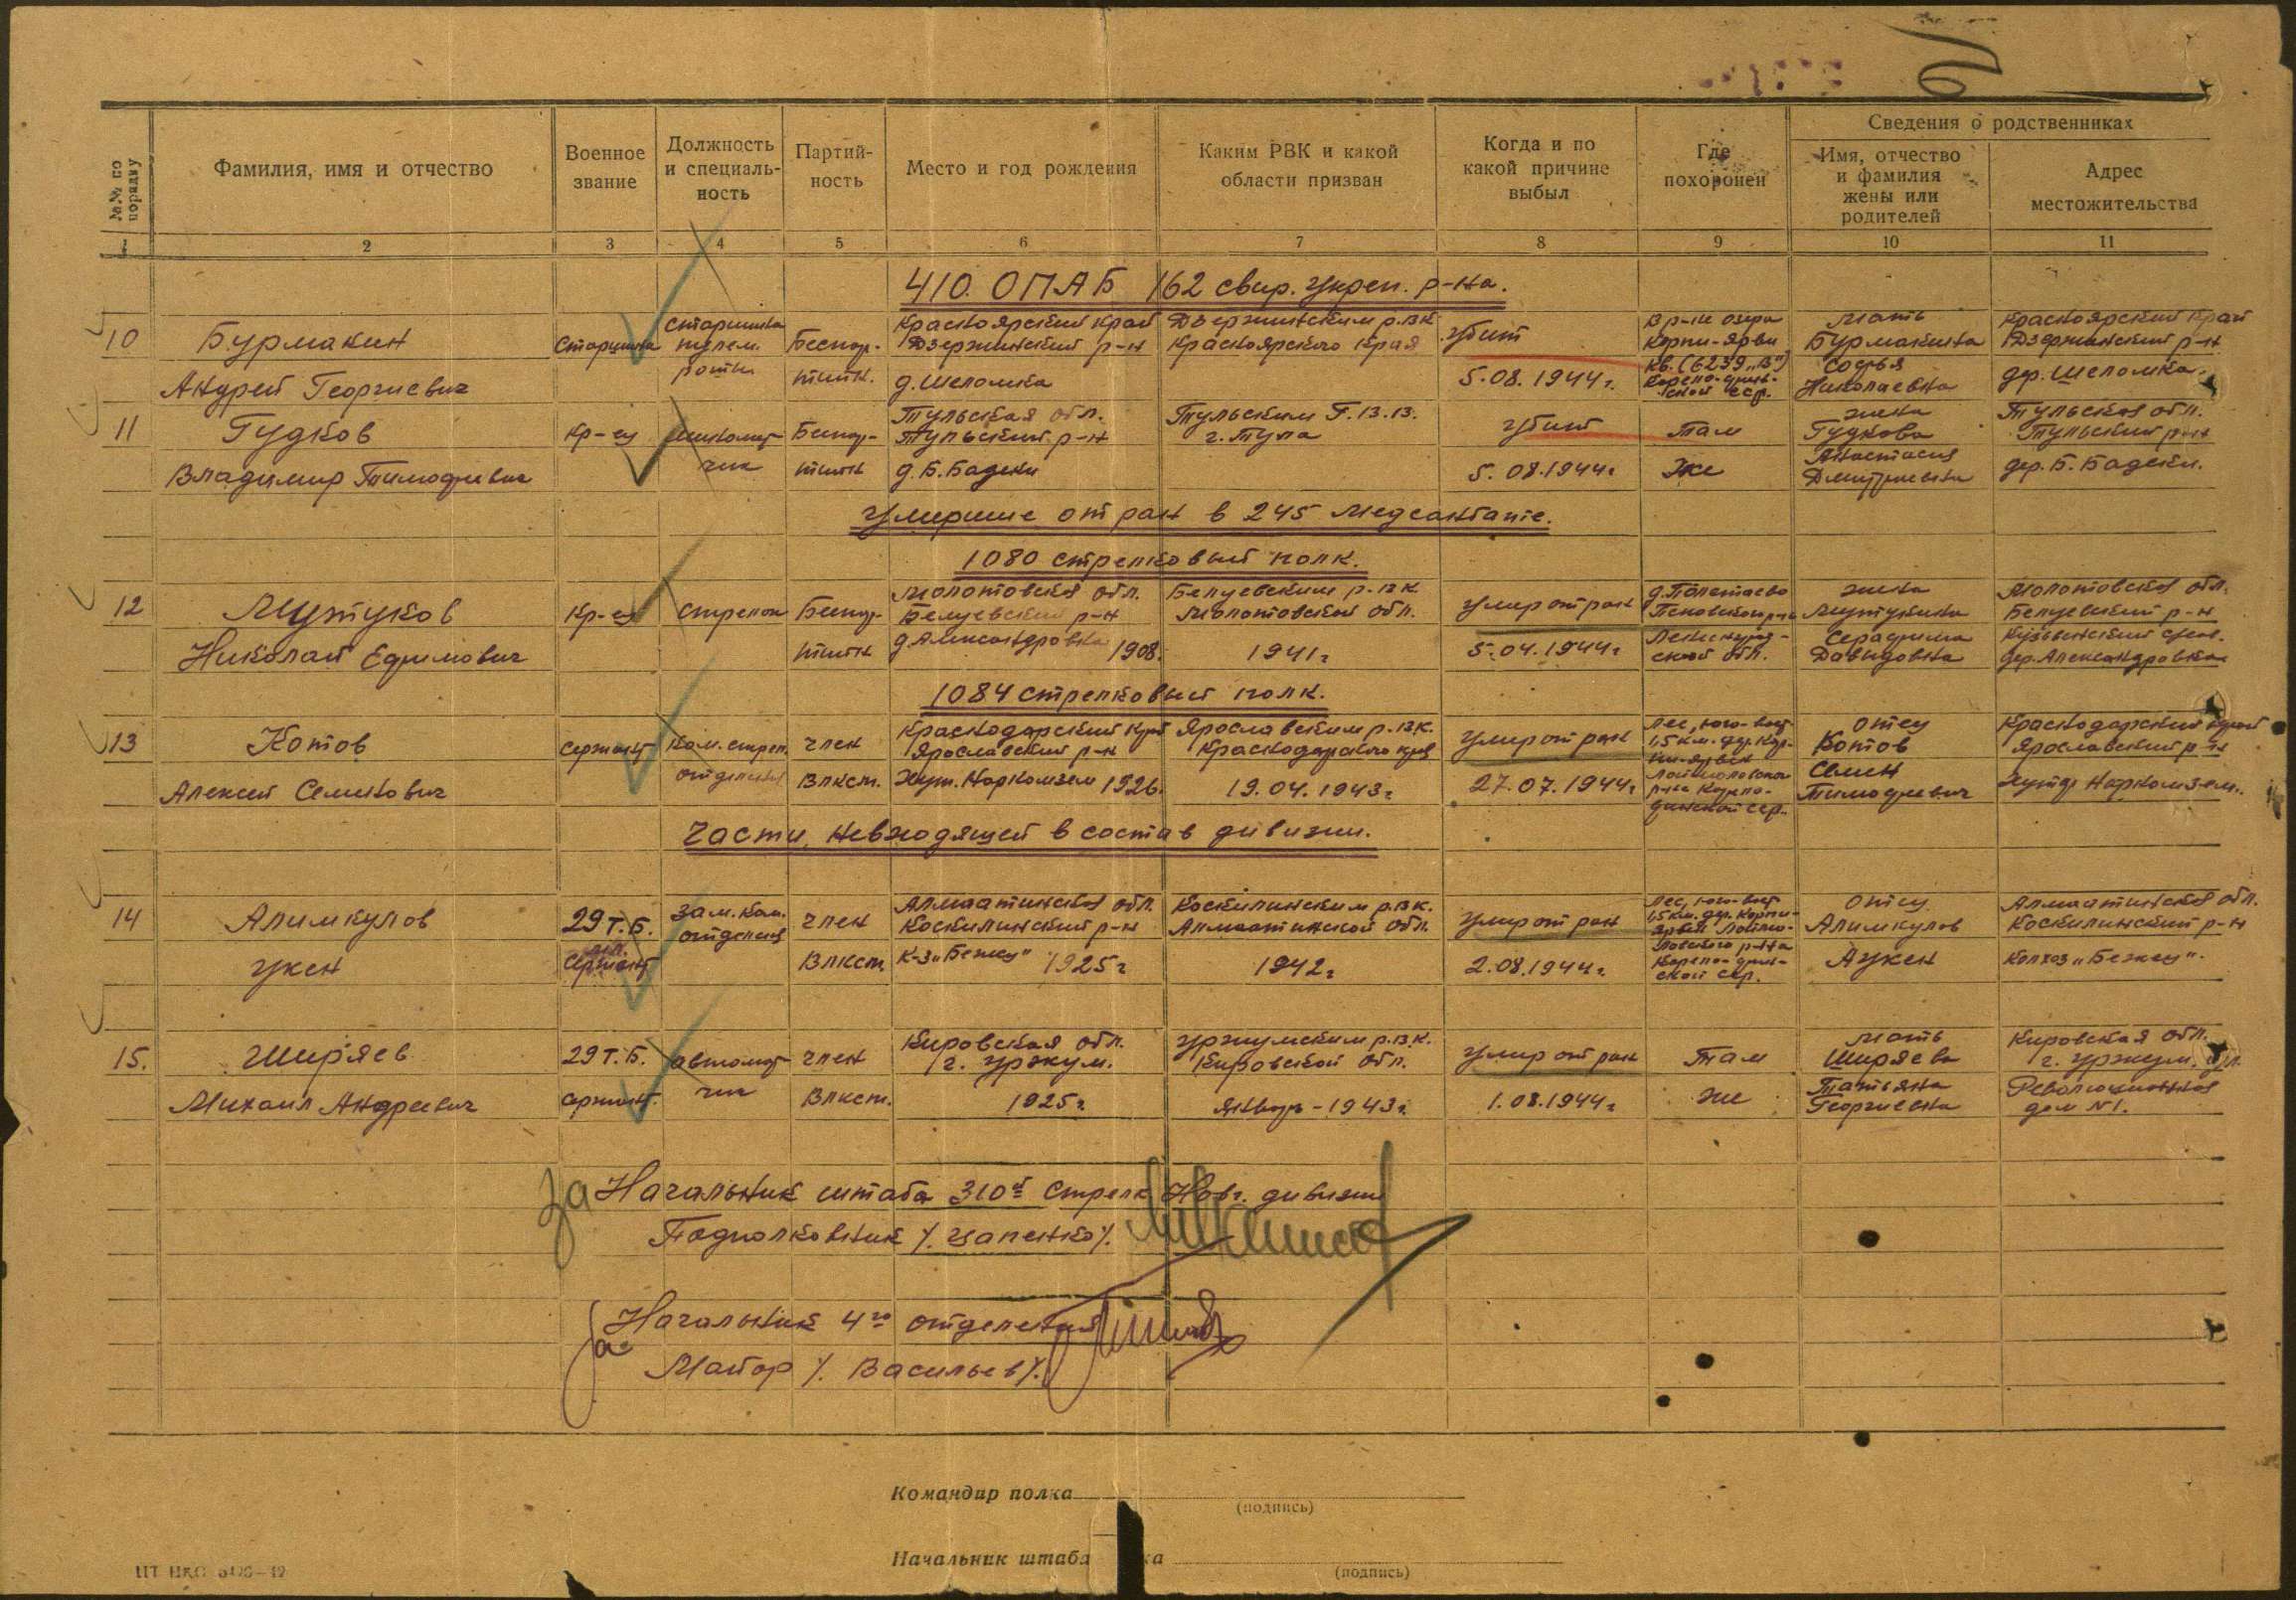 №№ по порядку
Фамилия, имя и отчество
Военное звание
Должность и специаль-ность
Партий-ность
Место и год рождения
Каким РВК и какой области призван
Когда и по какой причине выбыл
Где похоронен
Сведения о родственниках
Имя, отчество и фамилия жены или родителей
Адрес местожительства
1 2 3 4 5 6 7 8 9 10 11
410. ОПАБ 162 свир. укреп. р-на.
10 Бурмакин
Андрей Георгиевич
Старшина
старшина
пулем.
роты
Беспар-
тийн.
Красноярский край
Дзержинский р-н
д. Шеломка
Дзержинским р.в.к
Красноярского края
убит
5.08.1944г.
В р-не озера
Корпи-ярви
кв. (6239 „В")
Карело-фин-
ской сср.
мать
Бурмакина
Софья
Николаевна
Красноярский край
Дзержинский р-н
дер. Шеломка.
11 Гудков
Владимир Тимофеевич
Кр-ец
миномет-
чик
Беспар-
тийн
Тульская обл.
Тульский р-н
д. Б. Бадеки
Тульским Г.В.В.
г. Тула
убит
5.08.1944г
Там
же
жена
Гудкова
Анастасия
Дмитриевна
Тульская обл.
Тульский р-н
дер. Б. Бадеки.
Умершие от ран в 245 медсанбате.
1080 стрелковый полк.
12 Мутуков
Николай Ефимович
Кр-ец
стрелок
Беспар-
тийн
Молотовская обл.
Белуевский р-н
д. Александровка 1908.
Белуевским р.в.к
Молотовской обл.
1941г
умир от ран
5.04.1944г.
д. Палетаево
Псковского р-на
Ленинград-
ской обл.
жена
Мутукина
Серафима
Давыдовна
Молотовская обл.
Белуевский р-н
дер. Александровка
1084 стрелковый полк.
13 Котов
Алексей Семенович
Сержант
Ком. стрел.
отделения
член
Влксм.
Краснодарский край
Ярославский р-н
Хут. Наркомзем 1926.
Ярославским р.в.к.
Краснодарского края
19.04.1943г
умир от ран
27.07.1944г
Лес, юго-вост
1,5 км. дер. Кор-
пи-ярви
р-на Карело-
финской сср.
отец
Котов
Семен
Тимофеевич
Краснодарский край
Ярославский р-н
Хутор Наркомзем.
Части, невходящей в состав дивизии.
14 Алимкулов
Укен
29 Т.Б.
мл.
Сержант
Зам. Ком.
отделения
член
Влксм.
Алмаатинская обл.
Коскилинский р-н
К-з „Бекец" 1925г
Коскилинским р.в.к.
Алмаатинской обл.
1942г
умир от ран
2.08.1944г.
Лес, юго-вост
1,5 км. дер. Корпи-
ярви Лоймо-
ловского р-на
Карело-фин-
ской сср.
отец
Алимкулов
Аукен
Алмаатинская обл.
Коскилинский р-н
колхоз „Бекец".
15. Ширяев
Михаил Андреевич
29 Т.Б.
сржант.
автомат-
чик
член
Влксм.
Кировская обл.
г. Уржум.
1925г
Уржумским р.в.к.
Кировской обл.
Январь-1943г.
умир от ран
1.08.1944г
Там
же
мать
Ширяева
Татьяна
Георгиевна
Кировская обл.
г. Уржум. ул.
Революционная
дом №1.
за Начальник штаба 310й Стрелк Новг. дивизии
Подполковник /. Цапенко/.
За Начальник 4го отделения
Майор /. Васильев/.
Командир полка
(подпись)
Начальник штаба
(подпись)